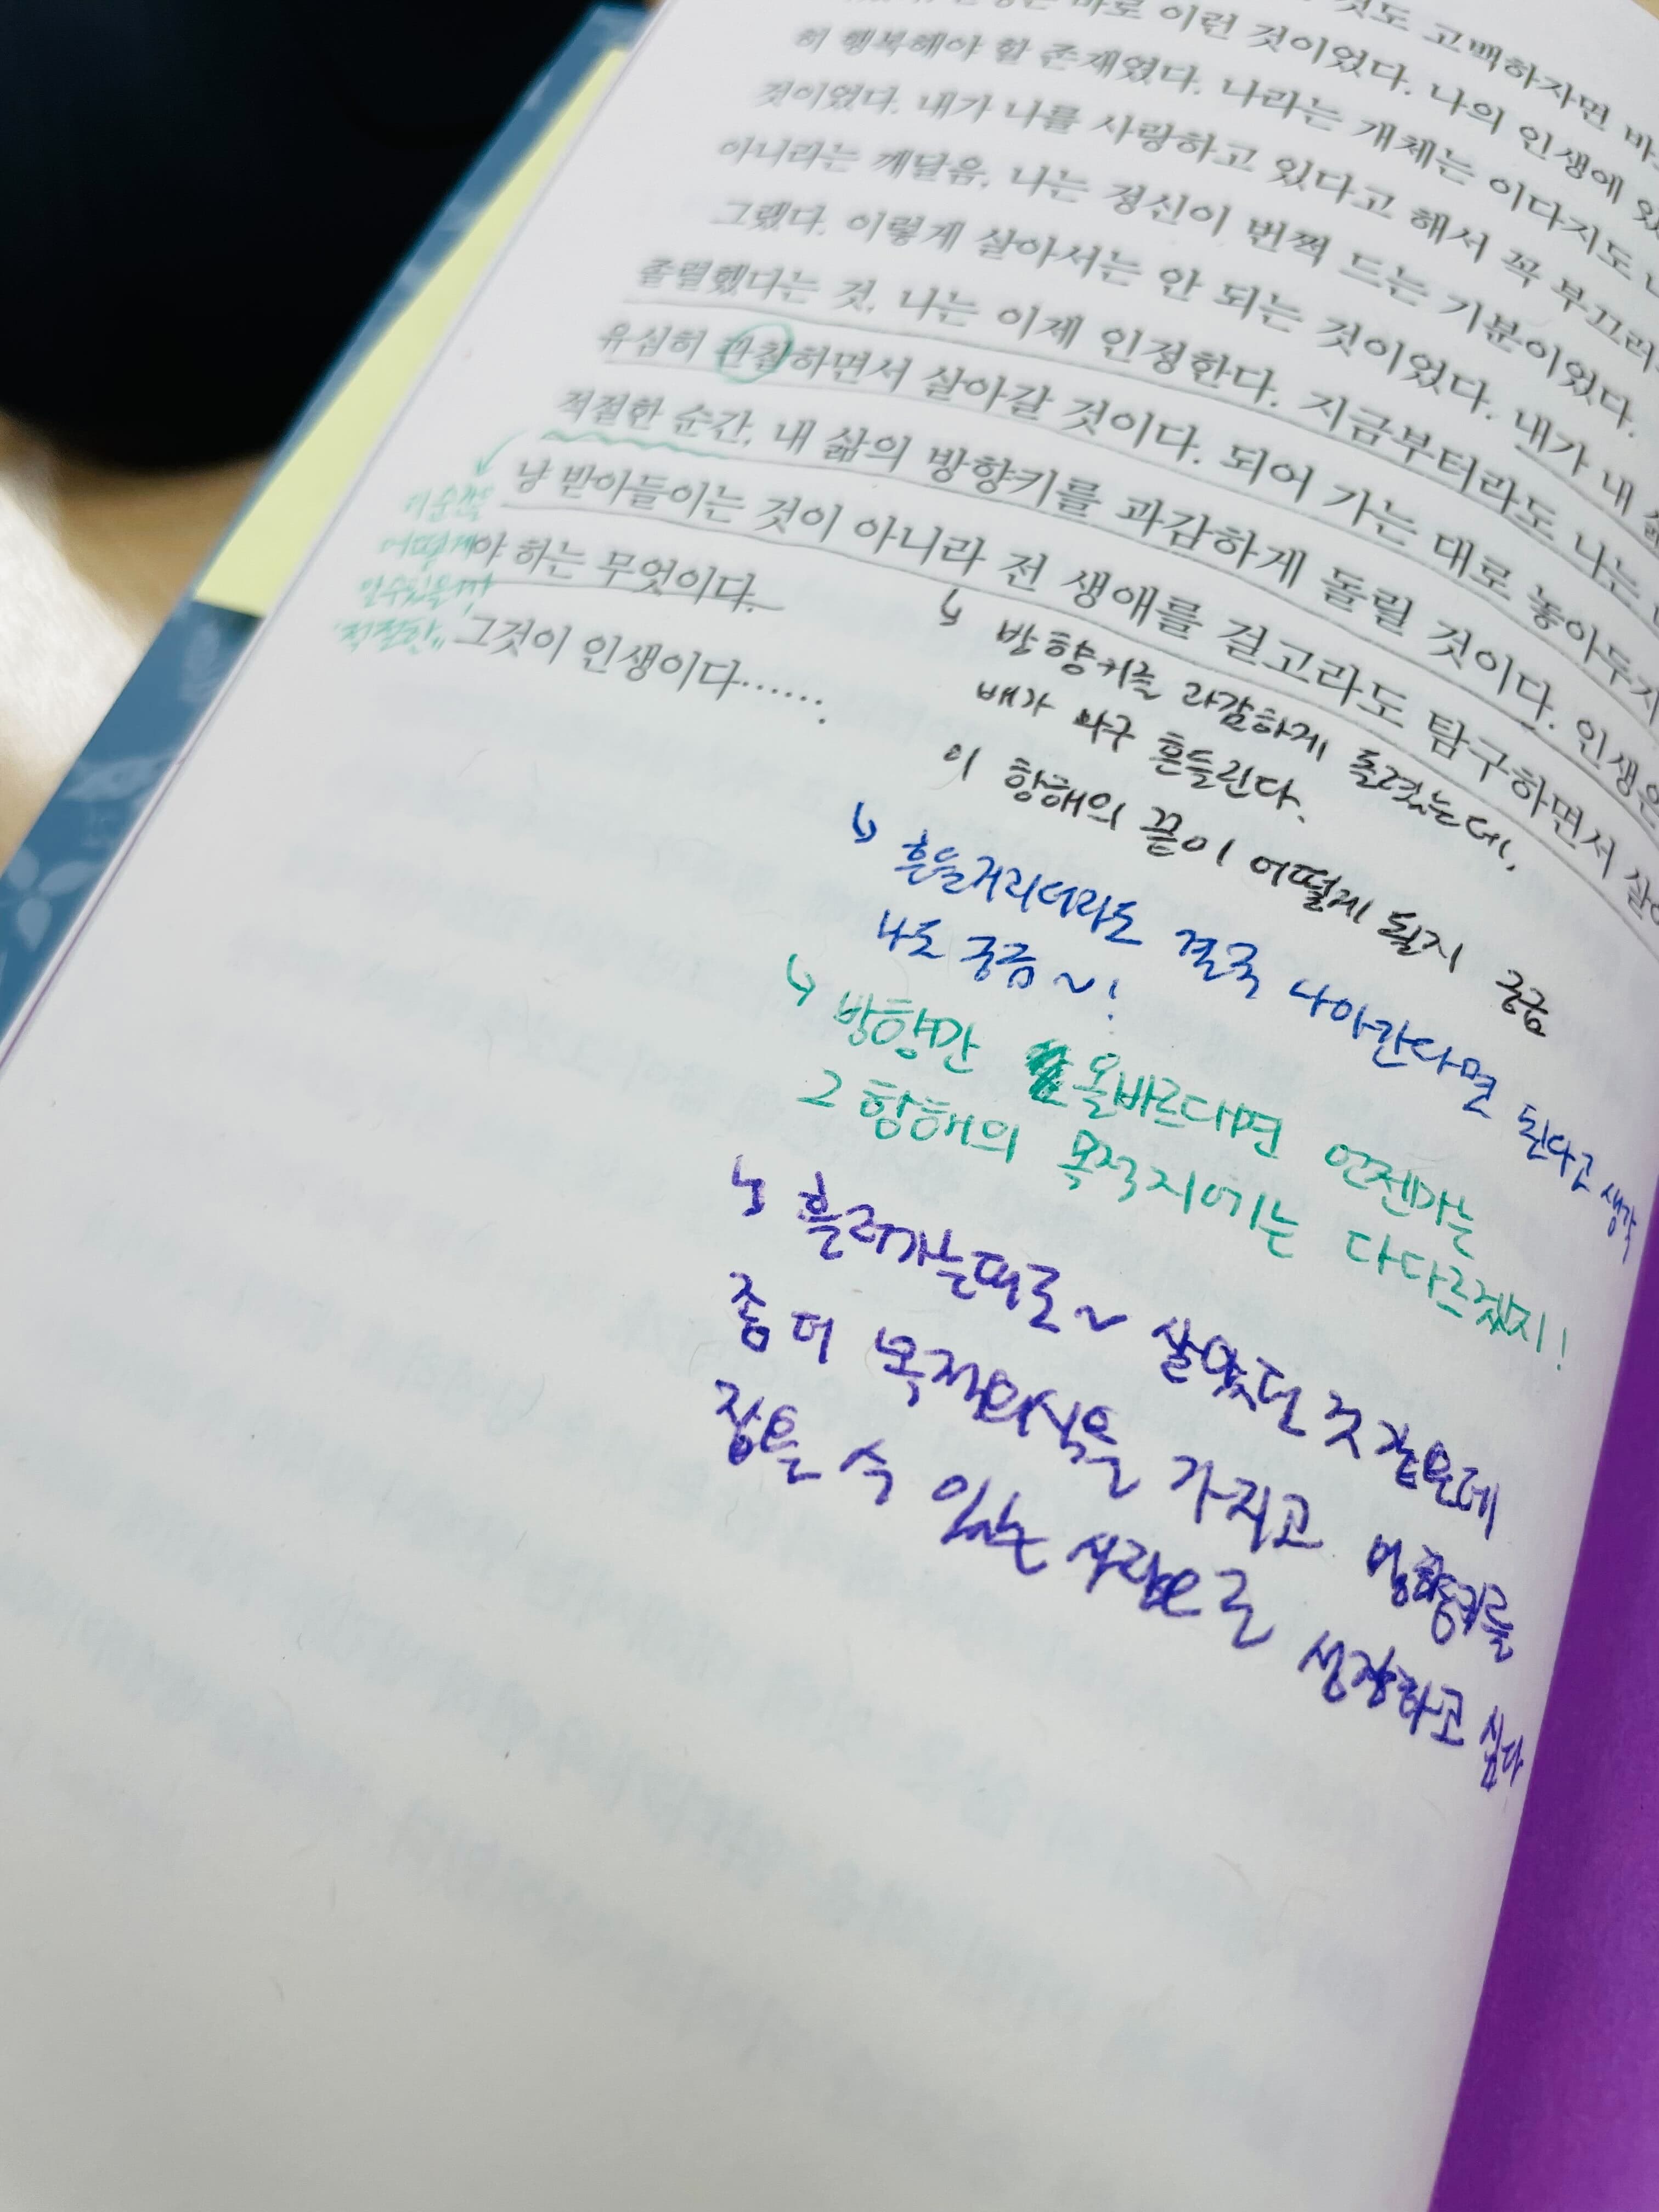 것도 고백하자면
바로 이런 것이었다. 나의 인생에
히 행복해야 할 존재였다. 나라는 개체는 이다지도
것이었다. 내가 나를 사랑하고 있다고 해서 꼭 부끄러
아니라는 깨달음, 나는 정신이 번쩍 드는 기분이었다.
그랬다. 이렇게 살아서는 안 되는 것이었다. 내가 내
졸렬했다는 것, 나는 이제 인정한다. 지금부터라도 나는
유심히 관찰하면서 살아갈 것이다. 되어 가는 대로 놓아두지
적절한 순간, 내 삶의 방향키를 과감하게 돌릴 것이다. 인생은
냥 받아들이는 것이 아니라 전 생애를 걸고라도 탐구하면서 살아
야 하는 무엇이다.
그것이 인생이다…….
어떻게
알수있을까
"적절한"
↳ 방향키를 과감하게 돌렸는데,
배가 마구 흔들린다.
이 항해의 끝이 어떻게 될지 궁금
↳ 흔들거리더라도 결국 나아간다면 된다고 생각
나도 궁금~!
↳ 방향만 올바르다면 언젠가는
그 항해의 목적지에는 다다르겠지!
↳ 흘러가는대로~ 살았던 것 같은데
좀 더 목적의식을 가지고 방향키를
잡을 수 있는 사람으로 성장하고 싶다